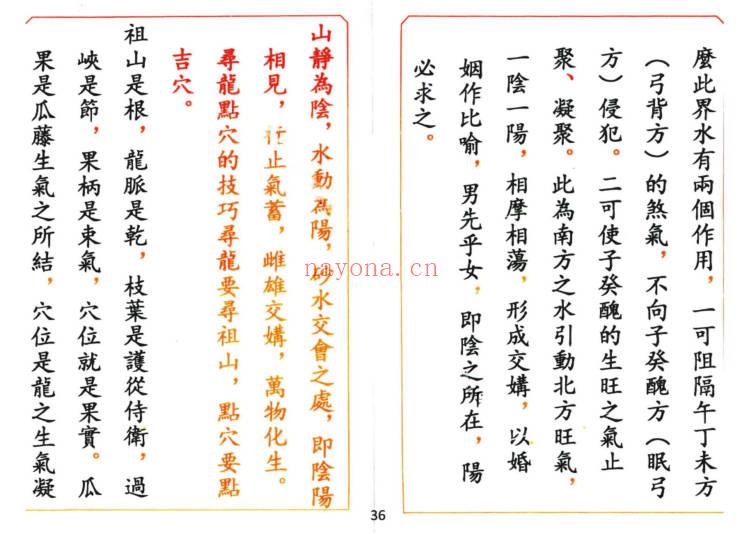 麼此界水有兩個作用，一可阻隔午丁未方
（弓背方）的煞氣，不向子癸醜方（眠弓
方）侵犯。二可使子癸醜的生旺之氣止
聚、凝聚。此為南方之水引動北方旺氣，
一陰一陽，相摩相蕩，形成交媾，以婚
姻作比喻，男先乎女，即陰之所在，陽
必求之。
山靜為陰，水動為陽，砂水交會之處，即陰陽
相見，行止氣蓄，雌雄交媾，萬物化生。
尋龍點穴的技巧尋龍要尋祖山，點穴要點
吉穴。
祖山是根，龍脈是乾，枝葉是護從侍衛，過
峽是節，果柄是束氣，穴位就是果實。瓜
果是瓜藤生氣之所結，穴位是龍之生氣凝
36
nayona.cn